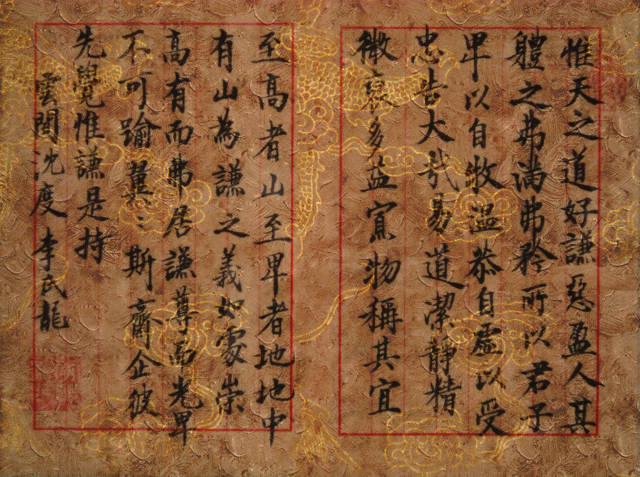 惟天之道好謙惡盈人其
體之弗滿弗矜所以君子
卑以自牧溫恭自虛以受
忠告大哉易道潔靜精
微裒多益寡物稱其宜
至高者山至卑者地地中
有山為謙之義如處崇
高有而弗居謙尊而光卑
不可踰亹〻斯齋企彼
先覺惟謙是持
雲間沈度 李民龍